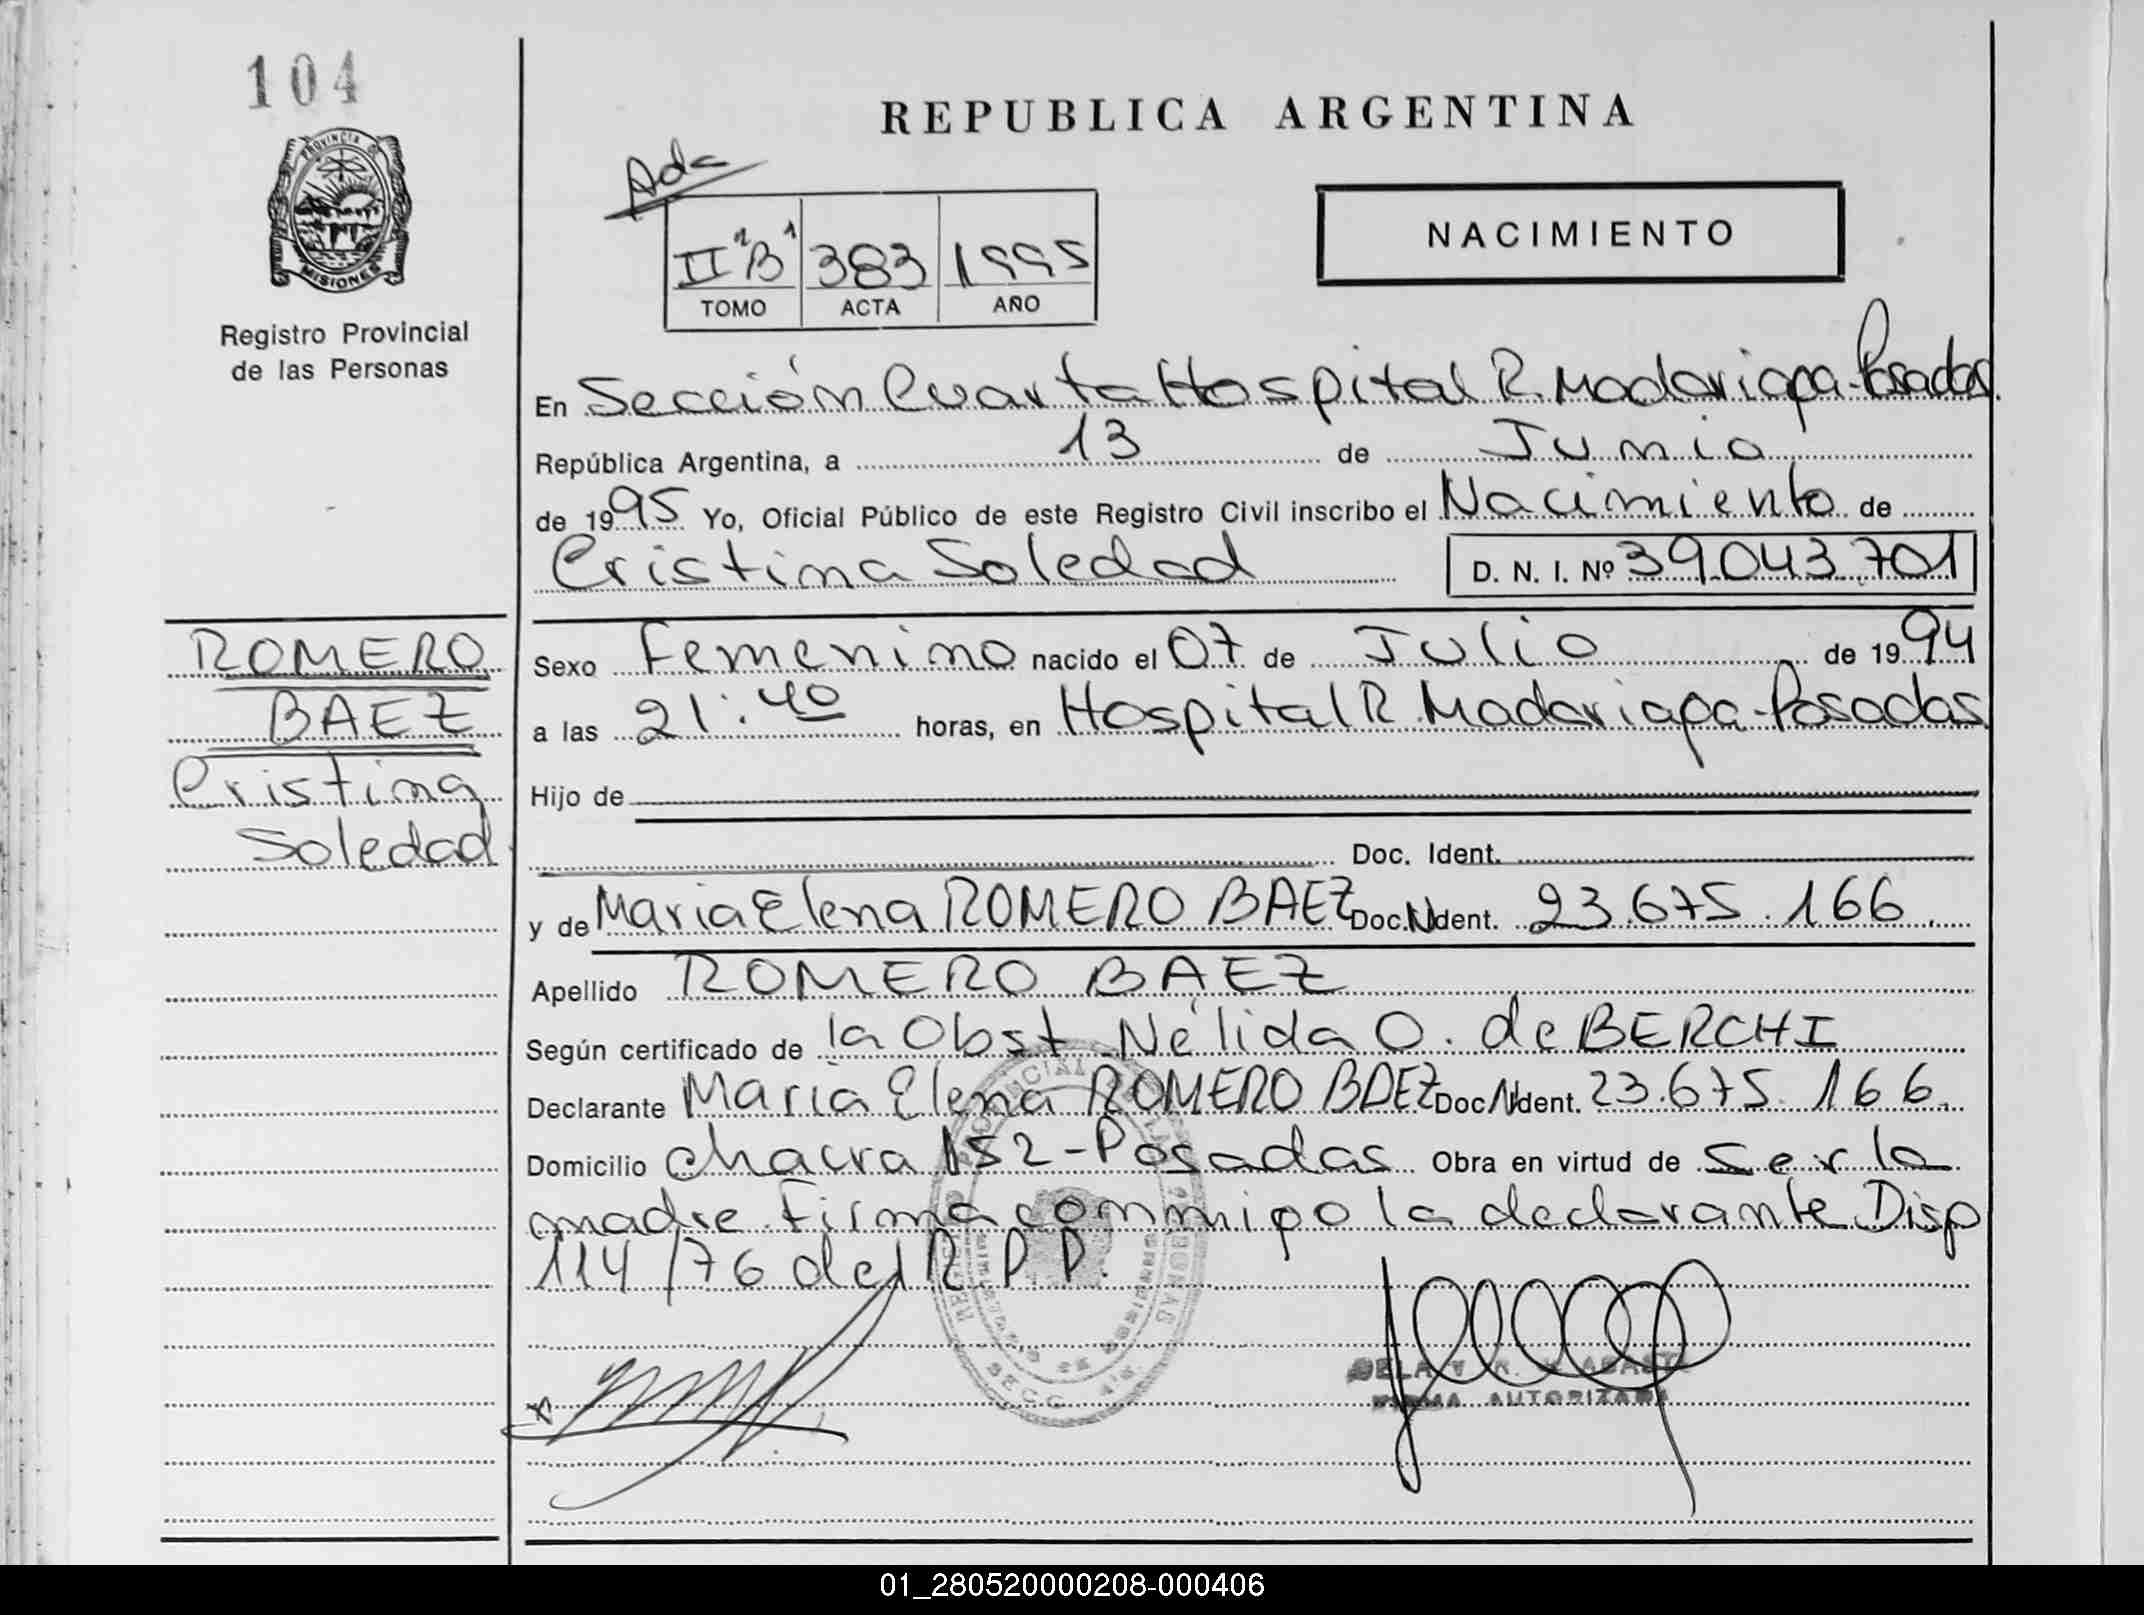 104
PROVINCIA DE
MISIONES
Registro Provincial
de las Personas
REPUBLICA ARGENTINA
Ada
II "B" 383 1995
TOMO ACTA AÑO
NACIMIENTO
En Sección Cuarta Hospital R. Madariaga-Posadas
República Argentina, a 13 de Junio
de 1995 Yo, Oficial Público de este Registro Civil inscribo el Nacimiento de
Cristina Soledad D. N. I. Nº 39.043.701
ROMERO
BAEZ
Cristina
Soledad
Sexo Femenino nacido el 07 de Julio de 1994
a las 21:40 horas, en Hospital R. Madariaga-Posadas
Hijo de
Doc. Ident.
y de Maria Elena ROMERO BAEZ Doc. Ident. 23.675.166.
Apellido ROMERO BAEZ
Según certificado de la Obst. Nélida O. de BERCHI
Declarante Maria Elena ROMERO BAEZ Doc. Ident. 23.675.166.
Domicilio chacra 152-Posadas Obra en virtud de ser la
madre. Firma conmigo la declarante Disp
114/76 del R.P.P.
SECC. 4ta.
FIRMA AUTORIZADA
01_280520000208-000406